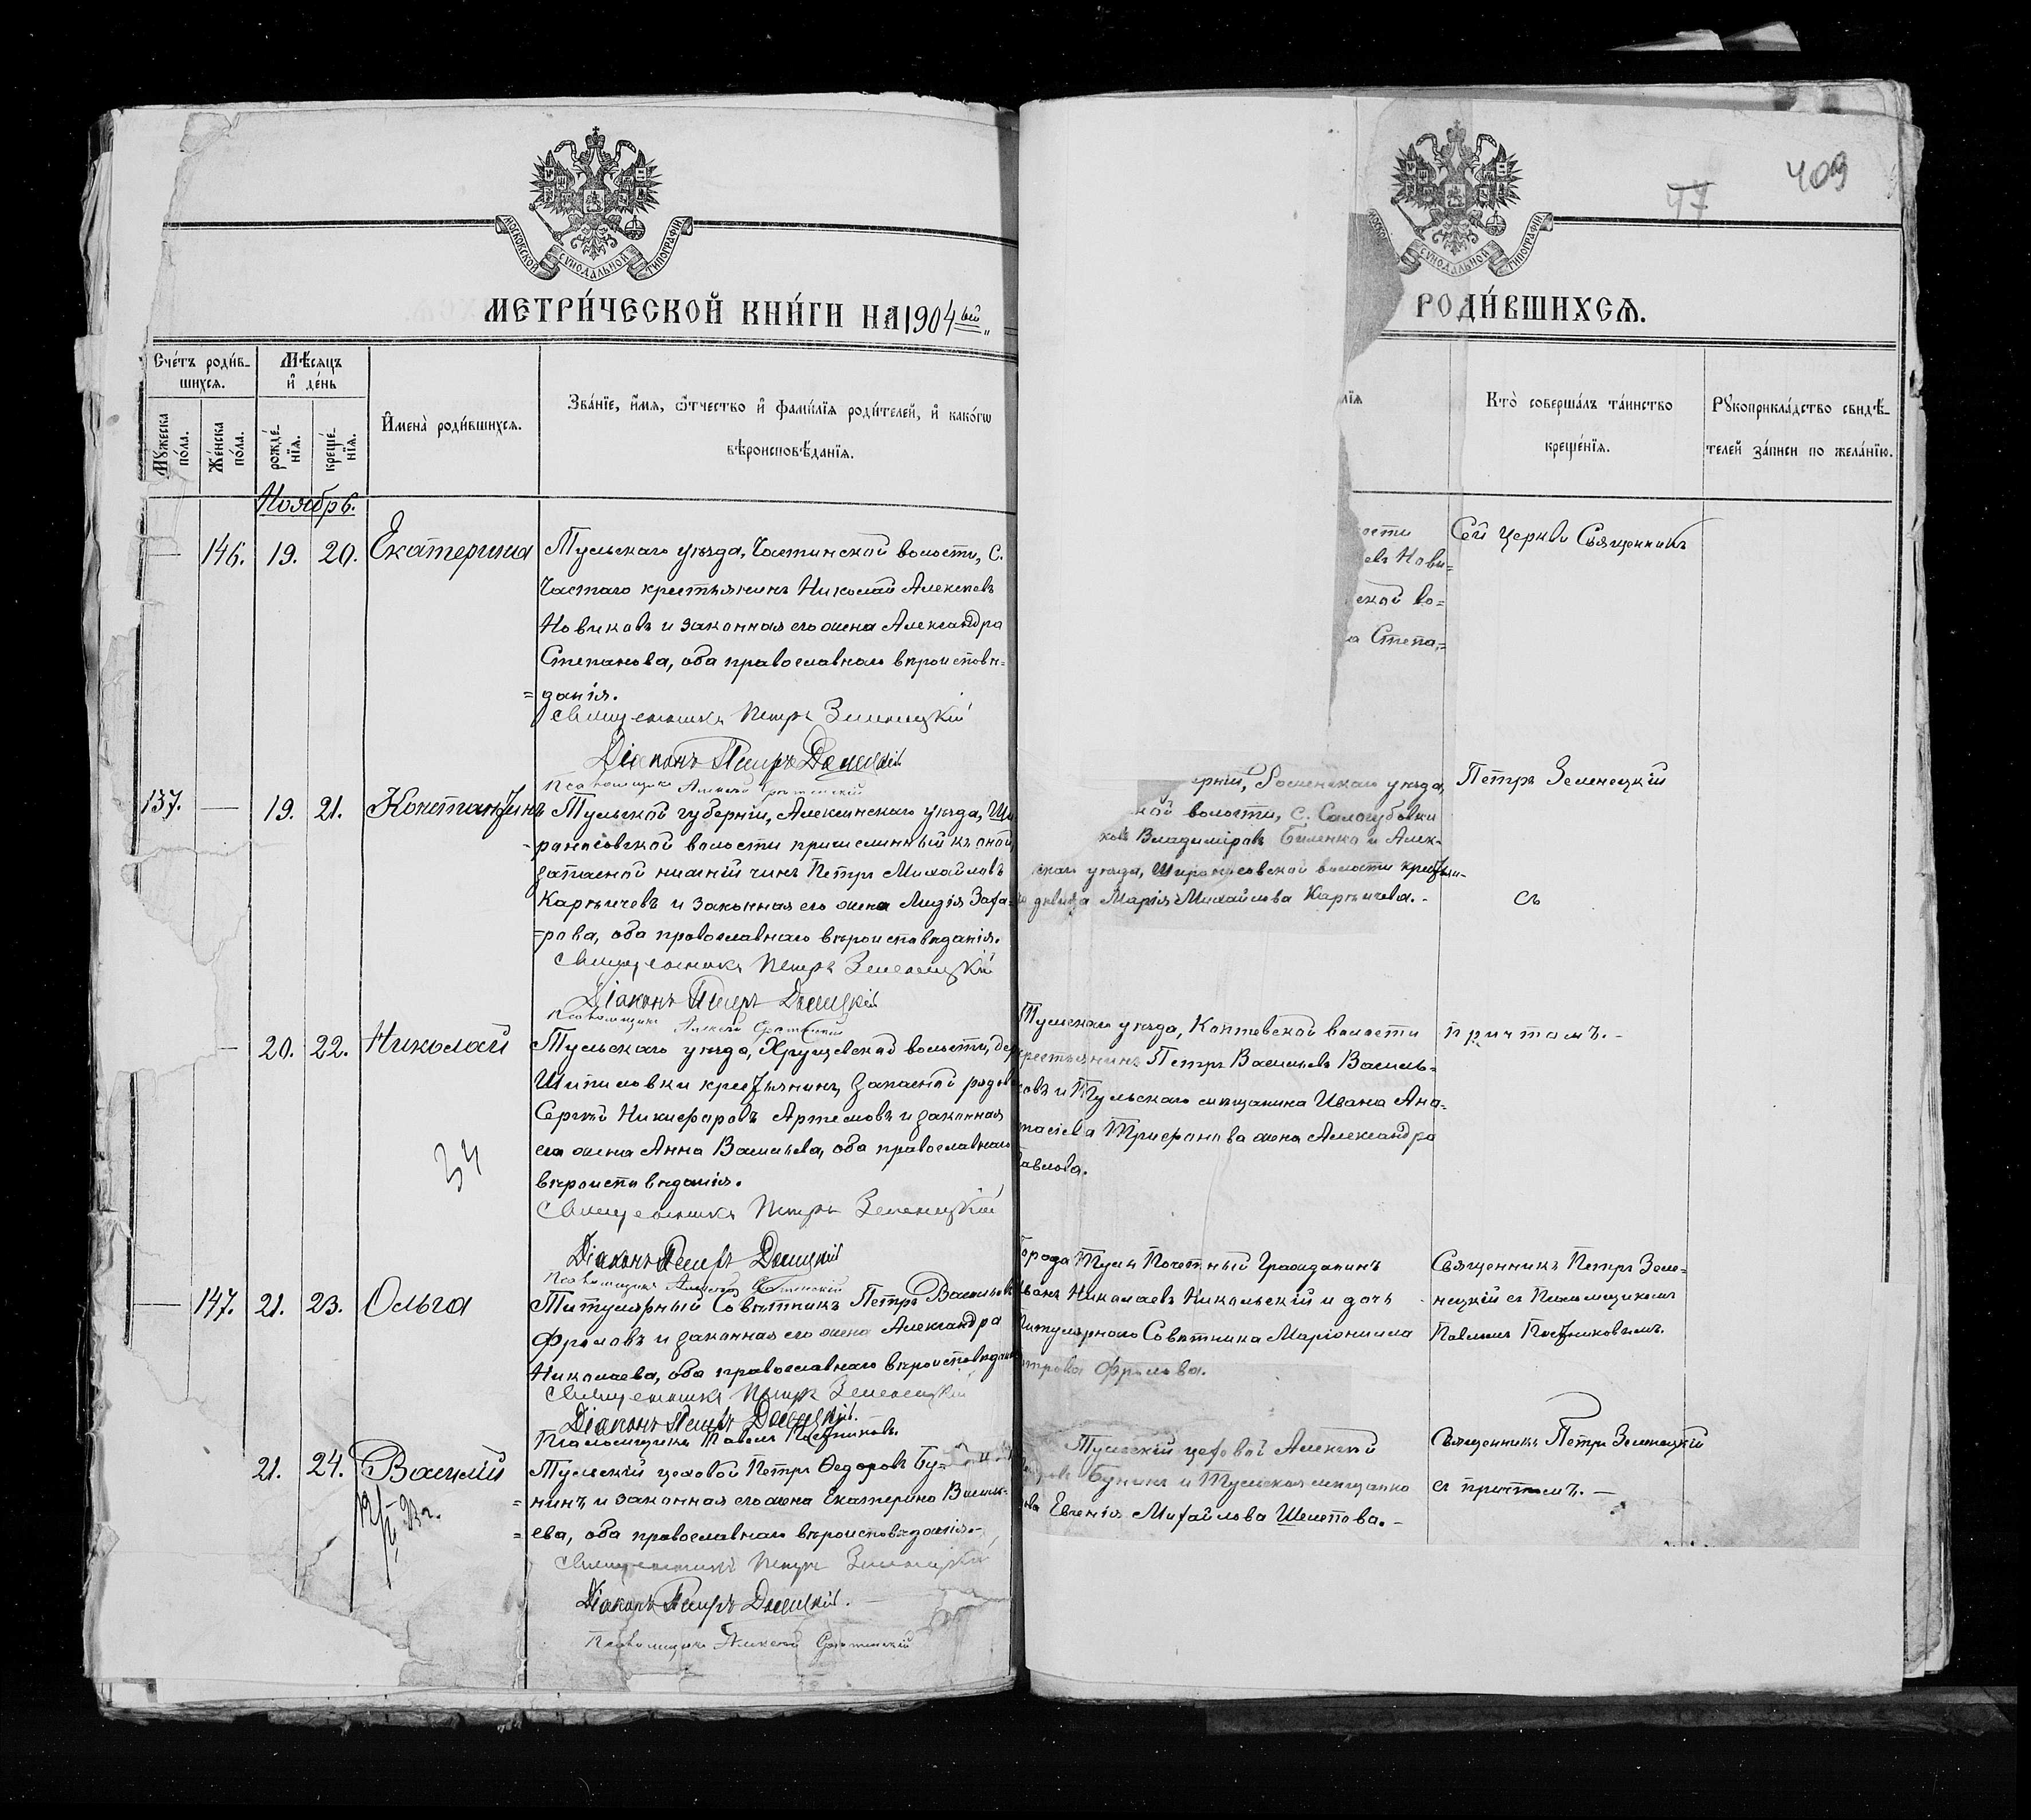 409
47
МОСКОВСКОЙ СУНОДАЛЬНОЙ ТИПОГРАФІИ.
МЕТРИ́ЧЕСКОЙ КНИ́ГИ НА 1904 ый
Сче́тъ роди́в-
шихся.
Мѣсяцъ
и҆ де́нь
Мꙋ́жеска
по́ла.
Же́нска
по́ла.
рожде́-
нїя.
креще́-
нїя.
И҆мена̀ роди́вшихся.
Зва́нїе, и҆́мя, ѻ҆́тчество и҆ фами́лїя роди́телей, и҆ како́гѡ
вѣроисповѣ́данїя.
Ноябрь.
146. 19. 20. Екатерина
Тульскаго уѣзда, Частинской волости, с.
Частаго крестьянинъ Николай Алексѣевъ
Новиковъ и законная его жена Александра
Степанова, оба православнаго вѣроисповѣ-
=данія.
Священникъ Петръ Зеленецкій
Діаконъ Петръ Донецкій
Псаломщикъ Алексѣй Срѣтенскій
137. 19. 21. Константинъ
Тульской губерніи, Алексинскаго уѣзда, Ши-
роносовской волости причисленный къ оной
запасной нижній чинъ Петръ Михайловъ
Каргичевъ и законная его жена Лидія Заха-
=рова, оба православнаго вѣроисповѣданія.
Священникъ Петръ Зеленецкій
Діаконъ Петръ Донецкій
Псаломщикъ Алексѣй Срѣтенскій
20. 22. Николай
Тульскаго уѣзда, Хрущевской волости, дер
Шипиловки крестьянинъ, запасной рядов
Сергѣй Никифоровъ Артемовъ и законная
его жена Анна Васильева, оба православнаго
вѣроисповѣданія.
34
Священникъ Петръ Зеленецкій
Діаконъ Петръ Донецкій
Псаломщикъ Алексѣй Срѣтенскій
147. 21. 23. Ольга
Титулярный Совѣтникъ Петръ Васильевъ
Фроловъ и законная его жена Александра
Николаева, оба православнаго вѣроисповѣдан
Священникъ Петръ Зеленецкій
Діаконъ Петръ Донецкій.
Псаломщикъ Павелъ Постниковъ.
21. 24. Василій
Тульскій цеховой Петръ Ѳедоровъ Бу-
=нинъ и законная его жена Екатерина Василь-
=ева, оба православнаго вѣроисповѣданія.-
Священникъ Петръ Зеленецкій
Діаконъ Петръ Донецкій.
Псаломщикъ Алексѣй Срѣтенскій
МОСКОВСКОЙ СУНОДАЛЬНОЙ ТИПОГРАФІИ.
РОДИ́ВШИХСЯ.
лїя
Кто̀ соверша́лъ та́инство
креще́нїя.
Рꙋкоприкла́дство свидѣ́-
телей за́писи по жела́нїю.
ости
евъ Нови=
ской во=
а Степа=
Сей церкви Священникъ
рніи, Роменскаго уѣзда,
кой волости, с. Салогубовки
ковъ Владиміровъ Биленко и Алек-
скаго уѣзда, Широносовской волости крестьян-
дѣвица Марія Михайлова Каргичева.-
Петръ Зеленецкій
съ
Тульскаго уѣзда, Коптевской волости
крестьянинъ Петръ Васильевъ Василь-
евъ и Тульскаго мѣщанина Ивана Ана-
тасіева Трифонова жена Александра
авлова.
причтомъ.-
Города Тулы Почетный Гражданинъ
Иванъ Николаевъ Никольскій и дочь
Титулярнаго Совѣтника Маріонилла
етрова Фролова.
Священникъ Петръ Зеле-
нецкій съ Псаломщикомъ
Павломъ Постниковымъ.
Тульскій цеховой Алексѣй
Бунинъ и Тульская мѣщанка
ова Евгенія Михайлова Шелепова.-
Священникъ Петръ Зеленецкій
съ причтомъ.-